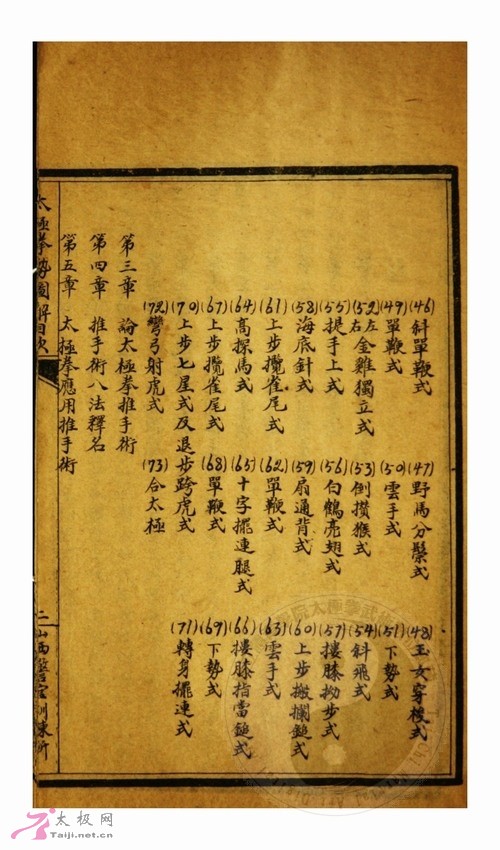 (46)斜單鞭式 (47)野馬分鬃式 (48)玉女穿梭式
(49)單鞭式 (50)雲手式 (51)下勢式
(52)左右金雞獨立式 (53)倒攢猴式 (54)斜飛式
(55)提手上式 (56)白鶴亮翅式 (57)摟膝拗步式
(58)海底針式 (59)扇通背式 (60)上步搬攔鎚式
(61)上步攬雀尾式 (62)單鞭式 (63)雲手式
(64)高探馬式 (65)十字擺連腿式 (66)摟膝指當鎚式
(67)上步攬雀尾式 (68)單鞭式 (69)下勢式
(70)上步七星式及退步跨虎式 (71)轉身擺連式
(72)彎弓射虎式 (73)合太極
第三章 論太極拳推手術
第四章 推手術八法釋名
第五章 太極拳應用推手術
太極拳勢圖解目次 二 山西警官訓練所
太极网
Taiji.net.cn